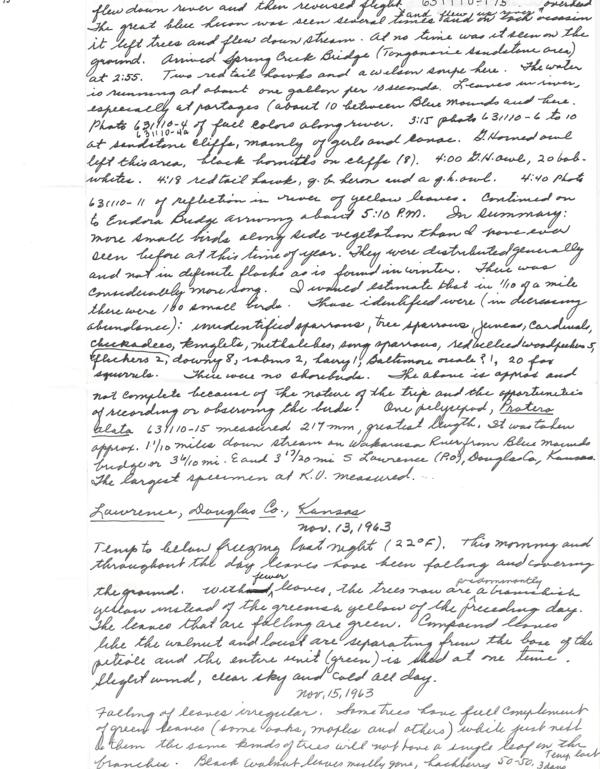 flew down river and then reversed flight 631110-1 75 overhead
The great blue heron was seen several times and on each occasion and flew up river
it left trees and flew down stream. At no time was it seen on the
ground. Arrived Spring Creek Bridge (Tonganoxie sandstone area)
at 2:55. Two red tail hawks and a wilson snipe here. The water
is running at about one gallon per 10 seconds. Leaves in river,
especially at portages (about 10 between Blue Mounds and here.
Photo 631110-4 of fall colors along river. 3:15 photo 631110-6 to 10
631110-4a
at sandstone cliffs, mainly of girls and canoe. G. Horned owl
left this area, black on cliffs (8). 4:00 G.H. owl, 20 bob-
whites. 4:18 red tail hawk, g.b. heron and a g.h. owl. 4:40 Photo
631110-11 of reflection in river of yellow leaves. Continued on
to Eudora Bridge arriving about 5:10 P.M. In summary:
more small birds along side vegetation than I have ever
seen before at this time of year. They were distributed generally
and not in definite flocks as is found in winter. There was
considerably more song. I would estimate that in 1/10 of a mile
there were 100 small birds. Those identified were (in decreasing
abundance): unidentified sparrows, tree sparrows, juncos, cardinals,
chickadees, kinglets, nuthatches, song sparrows, red bellied woodpeckers 5,
flickers 2, downy 8, robins 2, hairy 1, Baltimore oriole ? 1, 20 fox
squirrels. There were no shorebirds. The above is approx and
not complete because of the nature of the trip and the opportunities
of recording or observing the birds. One pelycypod, Proptera
alata 631110-15 measured 217 mm, greatest length. It was taken
approx. 1 1/10 miles down stream on Wakarusa River from Blue mounds
bridge or 3 6/10 mi. E and 3 17/20 mi S Lawrence (P.O), Douglas Co, Kansas.
The largest specimen at K.U. measured...
Lawrence, Douglas Co., Kansas
Nov. 13, 1963
Temp to below freezing last night (22°F). This morning and
throughout the day leaves have been falling and covering
the ground. With fewer leaves, the trees now are predominantly a brownish
yellow instead of the greenish yellow of the preceding day.
The leaves that are falling are green. Compound leaves
like the walnut and locust are separating from the base of the
petiole and the entire unit (green) is shed at one time.
Slight wind, clear sky and cold all day.
Nov, 15, 1963
Falling of leaves irregular. Some trees have full complement
of green leaves (some oaks, maples and others) while just next
to them the same kinds of trees will not have a single leaf on the
branches. Black walnut leaves mostly gone, hackberry 50-50. Temp last
3 days